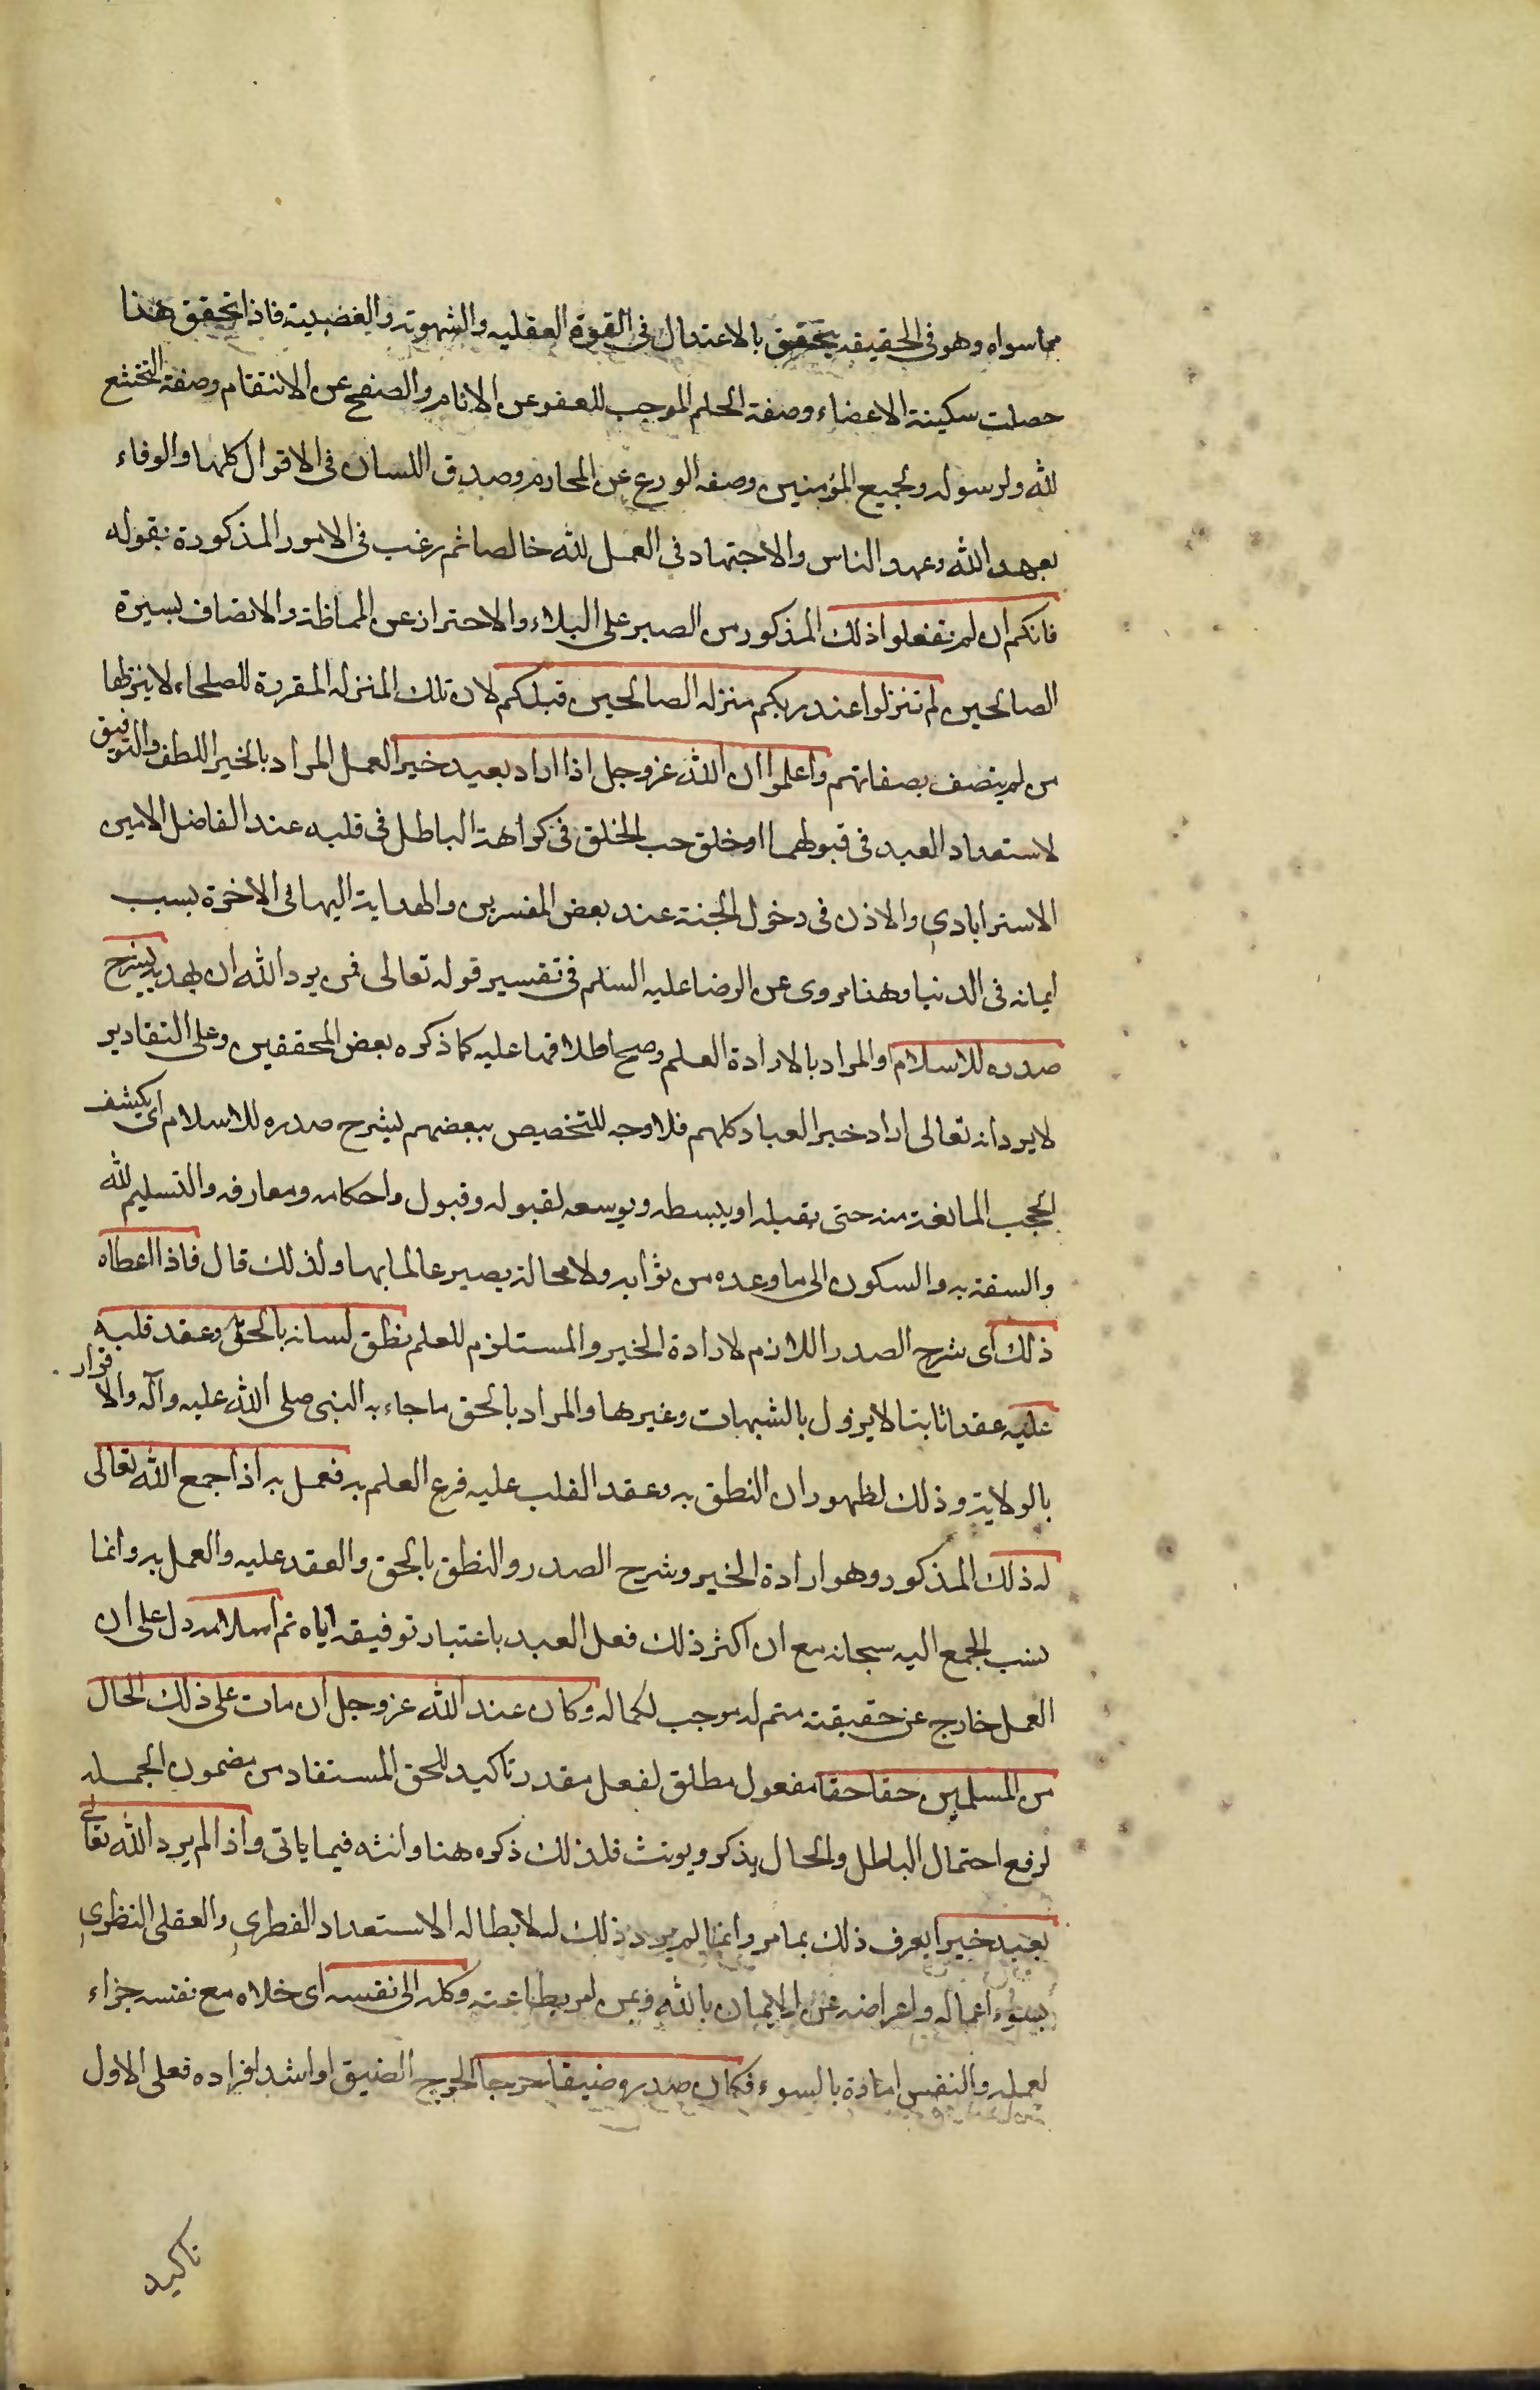 مما سواه وهو فى الحقيقه يتحقق بالاعتدال فى القوة العقليه والشهوية والغضبية فاذا تحقق هذا
حصلت سكينة الاعضاء وصفة الحلم الموجب للعفو عن الانام والصفح عن الانتقام وصفة التخشع
لله ولرسوله ولجميع المؤمنين وصفه الورع عن المحارم وصدق اللسان فى الاقوال كلها والوفاء
بعهد الله وعهد الناس والاجتهاد فى العمل لله خالصا ثم رغب فى الامور المذكورة بقوله
فانكم ان لم تفعلوا ذلك المذكور من الصبر على البلاء والاحتراز عن المماظة والاتصاف بسيرة
الصالحين لم تنزلوا عند ربكم منزله الصالحين قبلكم لان تلك المنزله المقررة للصلحاء لا ينزلها
من لم يتصف بصفاتهم واعلموا ان الله عز وجل اذا اراد بعبد خيرا لعمل المراد بالخير اللطف والتوفيق
لاستعداد العبد فى قبولهما او خلق حب الخلق فى كراهة الباطل فى قلبه عند الفاضل الامين
الاسترابادي والاذن فى دخول الجنة عند بعض المفسرين والهداية اليها فى الاخرة بسبب
ايمانه فى الدنيا وهذا مروى عن الرضا عليه السلم فى تفسير قوله تعالى فمن يرد الله ان يهديه يشرح
صدره للاسلام او المراد بالارادة العلم وصح اطلاقها عليه كما ذكره بعض المحققين وعلى التقادير
لا يرد انه تعالى اراد خير العباد كلهم فلا وجه للتخصيص ببعضهم ليشرح صدره للاسلام اى يكشف
الحجب المانعة منه حتى يقبله او يبسطه ويوسعه لقبوله وقبول واحكامه ومعارفه والتسليم لله
والسفة به والسكون الى ما وعده من ثوابه ولا محالة يصير عالما بها ولذلك قال فاذا اعطاه
ذلك اى شرح الصدر اللازم لارادة الخير والمستلزم للعلم نطق لسانه بالحق وعقد قلبه
عليه عقدا ثابتا لا يزول بالشبهات وغيرها والمراد بالحق ما جاء به النبى صلى الله عليه وآله والاقرار
بالولاية وذلك لظهور ان النطق به وعقد القلب عليه فرع العلم به فعمل به اذا جمع الله تعالى
له ذلك المذكور وهو ارادة الخير وشرح الصدر والنطق بالحق والعقد عليه والعمل به وانما
نسب الجمع اليه سبحانه مع ان اكثر ذلك فعل العبد باعتبار توفيقه اياه تم اسلامه دل على ان
العمل خارج عن حقيقته متم له موجب لكماله وكان عند الله عز وجل ان مات على ذلك الحال
من المسلمين حقا حقا مفعول مطلق لفعل مقدر تاكيد للحق المستفاد من مضمون الجمله
لرفع احتمال الباطل والحال يذكر ويونث فلذلك ذكره هنا وانثه فيما ياتى واذا لم يرد الله تعالى
بعبد خيرا يعرف ذلك بما مر وانما لم يرد ذلك له لابطاله الاستعداد الفطري والعقلى النظري
بسوء اعماله واعراضه عن الايمان بالله وعن امر بطاعته وكله الى نفسه اى خلاه مع نفسه جزاء
لعمله والنفس امارة بالسوء فكان صدره ضيقا حرجا الحرج الضيق او اشد افراده فعلى الاول
تاكيد